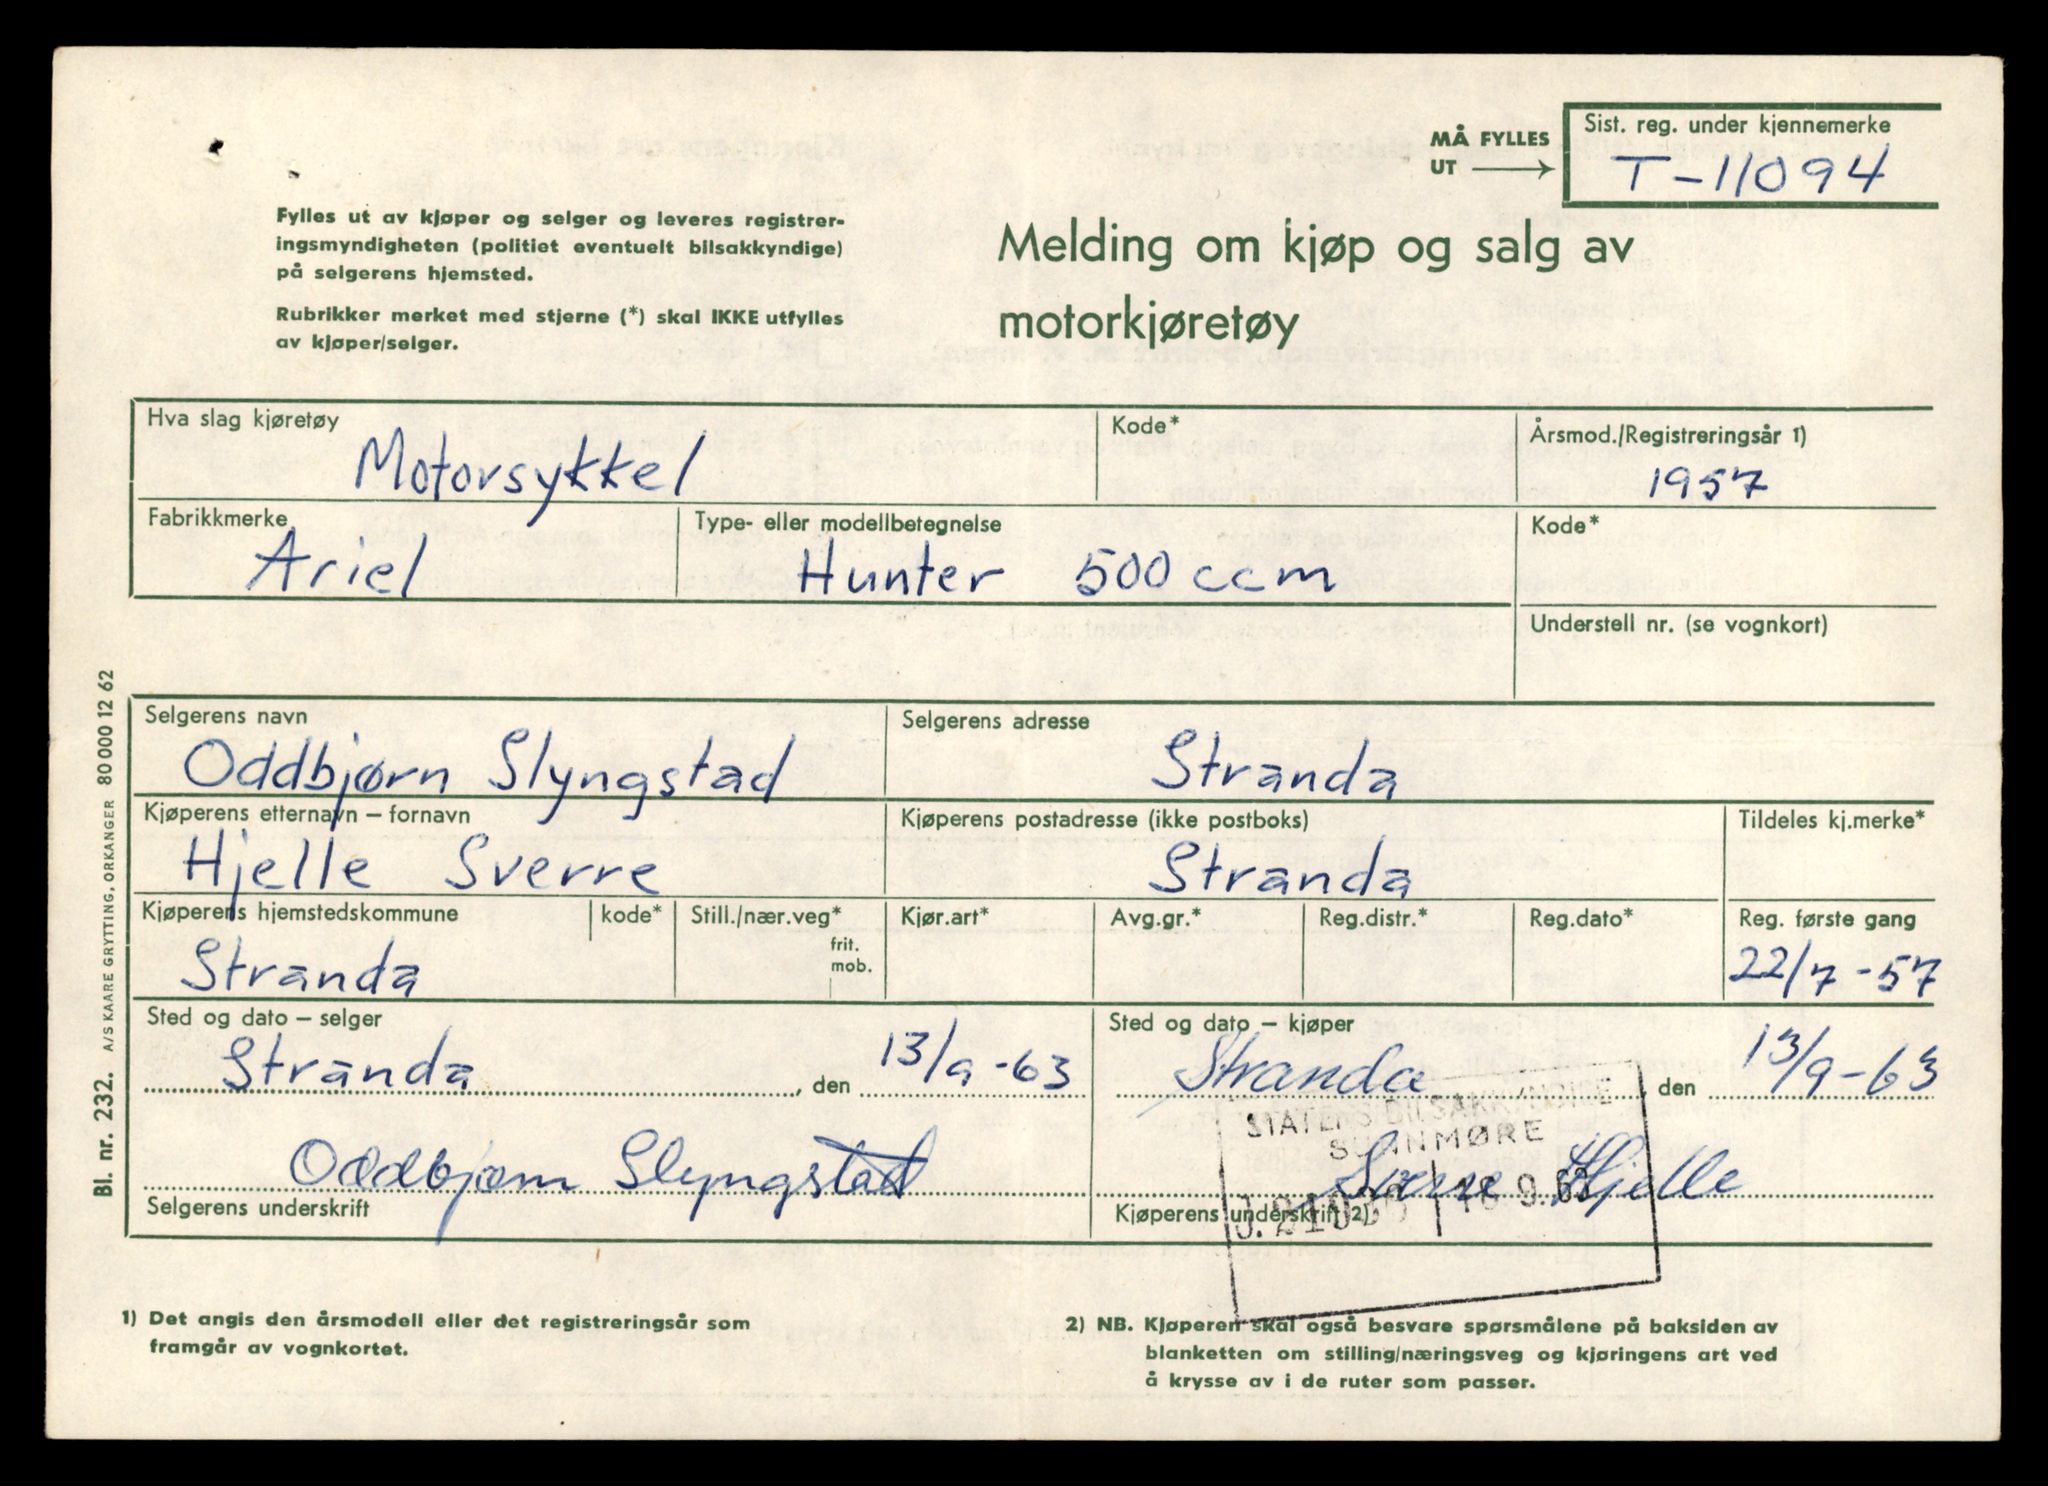 MÅ FYLLES
UT
Sist. reg. under kjennemerke
T-11094
Fylles ut av kjøper og selger og leveres registrer-
ingsmyndigheten (politiet eventuelt bilsakkyndige)
på selgerens hjemsted.
Rubrikker merket med stjerne (*) skal IKKE utfylles
av kjøper/selger.
Melding om kjøp og salg av
motorkjøretøy
Hva slag kjøretøy
Motorsykkel
Kode*
Årsmod./Registreringsår 1)
1957
Fabrikkmerke
Ariel
Type- eller modellbetegnelse
Hunter 500 ccm
Kode*
Understell nr. (se vognkort)
Selgerens navn
Oddbjørn Slyngstad
Selgerens adresse
Stranda
Kjøperens etternavn – fornavn
Hjelle Sverre
Kjøperens postadresse (ikke postboks)
Stranda
Tildeles kj.merke*
Kjøperens hjemstedskommune
Stranda
kode*
Still./nær.veg*
frit.
mob.
Kjør.art*
Avg.gr.*
Reg.distr.*
Reg.dato*
Reg. første gang
22/7-57
Sted og dato – selger
Stranda, den 13/9-63
Sted og dato – kjøper
Stranda, den 13/9-63
STATENS BILSAKKYNDIGE
SUNNMØRE
Oddbjørn Slyngstad
Sverre Hjelle
Selgerens underskrift
Kjøperens underskrift 2)
J. 16 9. 63
1) Det angis den årsmodell eller det registreringsår som
framgår av vognkortet.
2) NB. Kjøperen skal også besvare spørsmålene på baksiden av
blanketten om stilling/næringsveg og kjøringens art ved
å krysse av i de ruter som passer.
Bl. nr. 232. A/S KAARE GRYTTING, ORKANGER 80 000 12 62